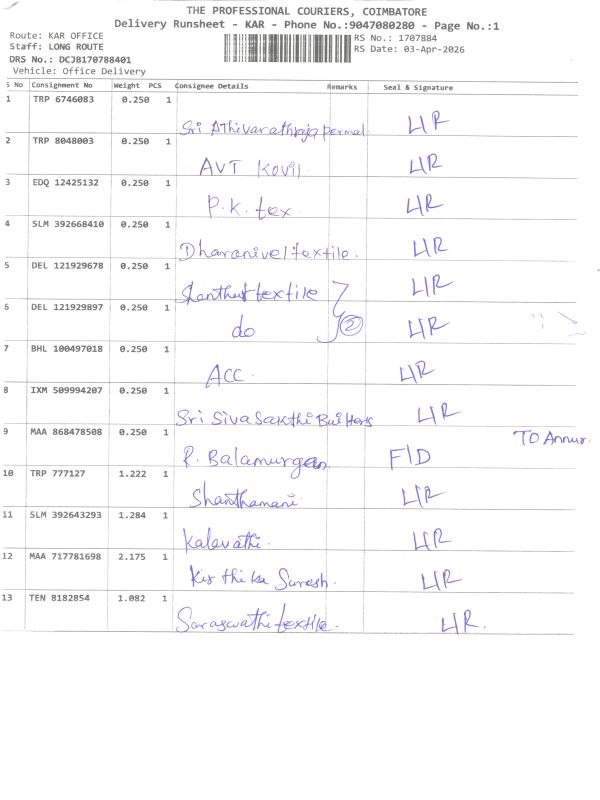 THE PROFESSIONAL COURIERS, COIMBATORE
Delivery Runsheet - KAR - Phone No.:9047080280 - Page No.:1
Route: KAR OFFICE
Staff: LONG ROUTE
DRS No.: DCJB170788401
Vehicle: Office Delivery
RS No.: 1707884
RS Date: 03-Apr-2026
S No Consignment No Weight PCS Consignee Details Remarks Seal & Signature
1 TRP 6746083 0.250 1
Sri Athivarathraja permal L/R
2 TRP 8048003 0.250 1
AVT Kovil L/R
3 EDQ 12425132 0.250 1
P.K. tex L/R
4 SLM 392668410 0.250 1
Dharanivel textile. L/R
5 DEL 121929678 0.250 1
textile L/R
6 DEL 121929897 0.250 1
do 2 L/R
7 BHL 100497018 0.250 1
ACC L/R
8 IXM 509994207 0.250 1
Sri Siva Sakthi Builters L/R
9 MAA 868478508 0.250 1
TO Annur.
R. Balamurgan F/D
10 TRP 777127 1.222 1
Shanthamani L/R
11 SLM 392643293 1.284 1
Kalavathi. L/R
12 MAA 717781698 2.175 1
Kirthika Suresh. L/R
13 TEN 8182854 1.082 1
Saraswathi textile. L/R.